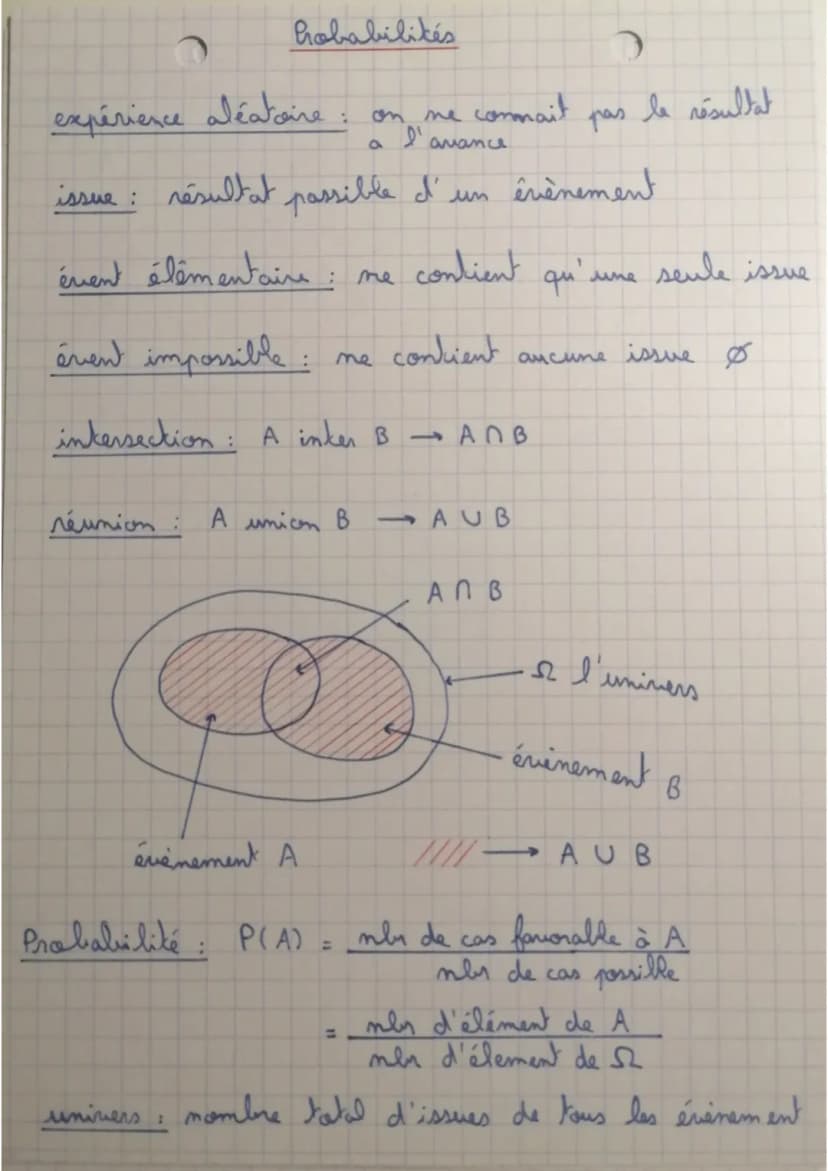 Probabilités
expérience aléatoire : on ne connait pas le résultat
a l'avance
issue : résultat possible d'un évènement
évent élémentaire : ne contient qu'une seule issue
évent impossible : ne contient aucune issue ∅
intersection : A inter B → A ∩ B
réunion : A union B → A ∪ B
A ∩ B
Ω l'univers
évènement B
évènement A
//// → A ∪ B
Probabilité : P(A) = nbr de cas favorable à A
nbr de cas possible
= nbr d'élément de A
nbr d'élement de Ω
univers : nombre total d'issues de tous les évènement